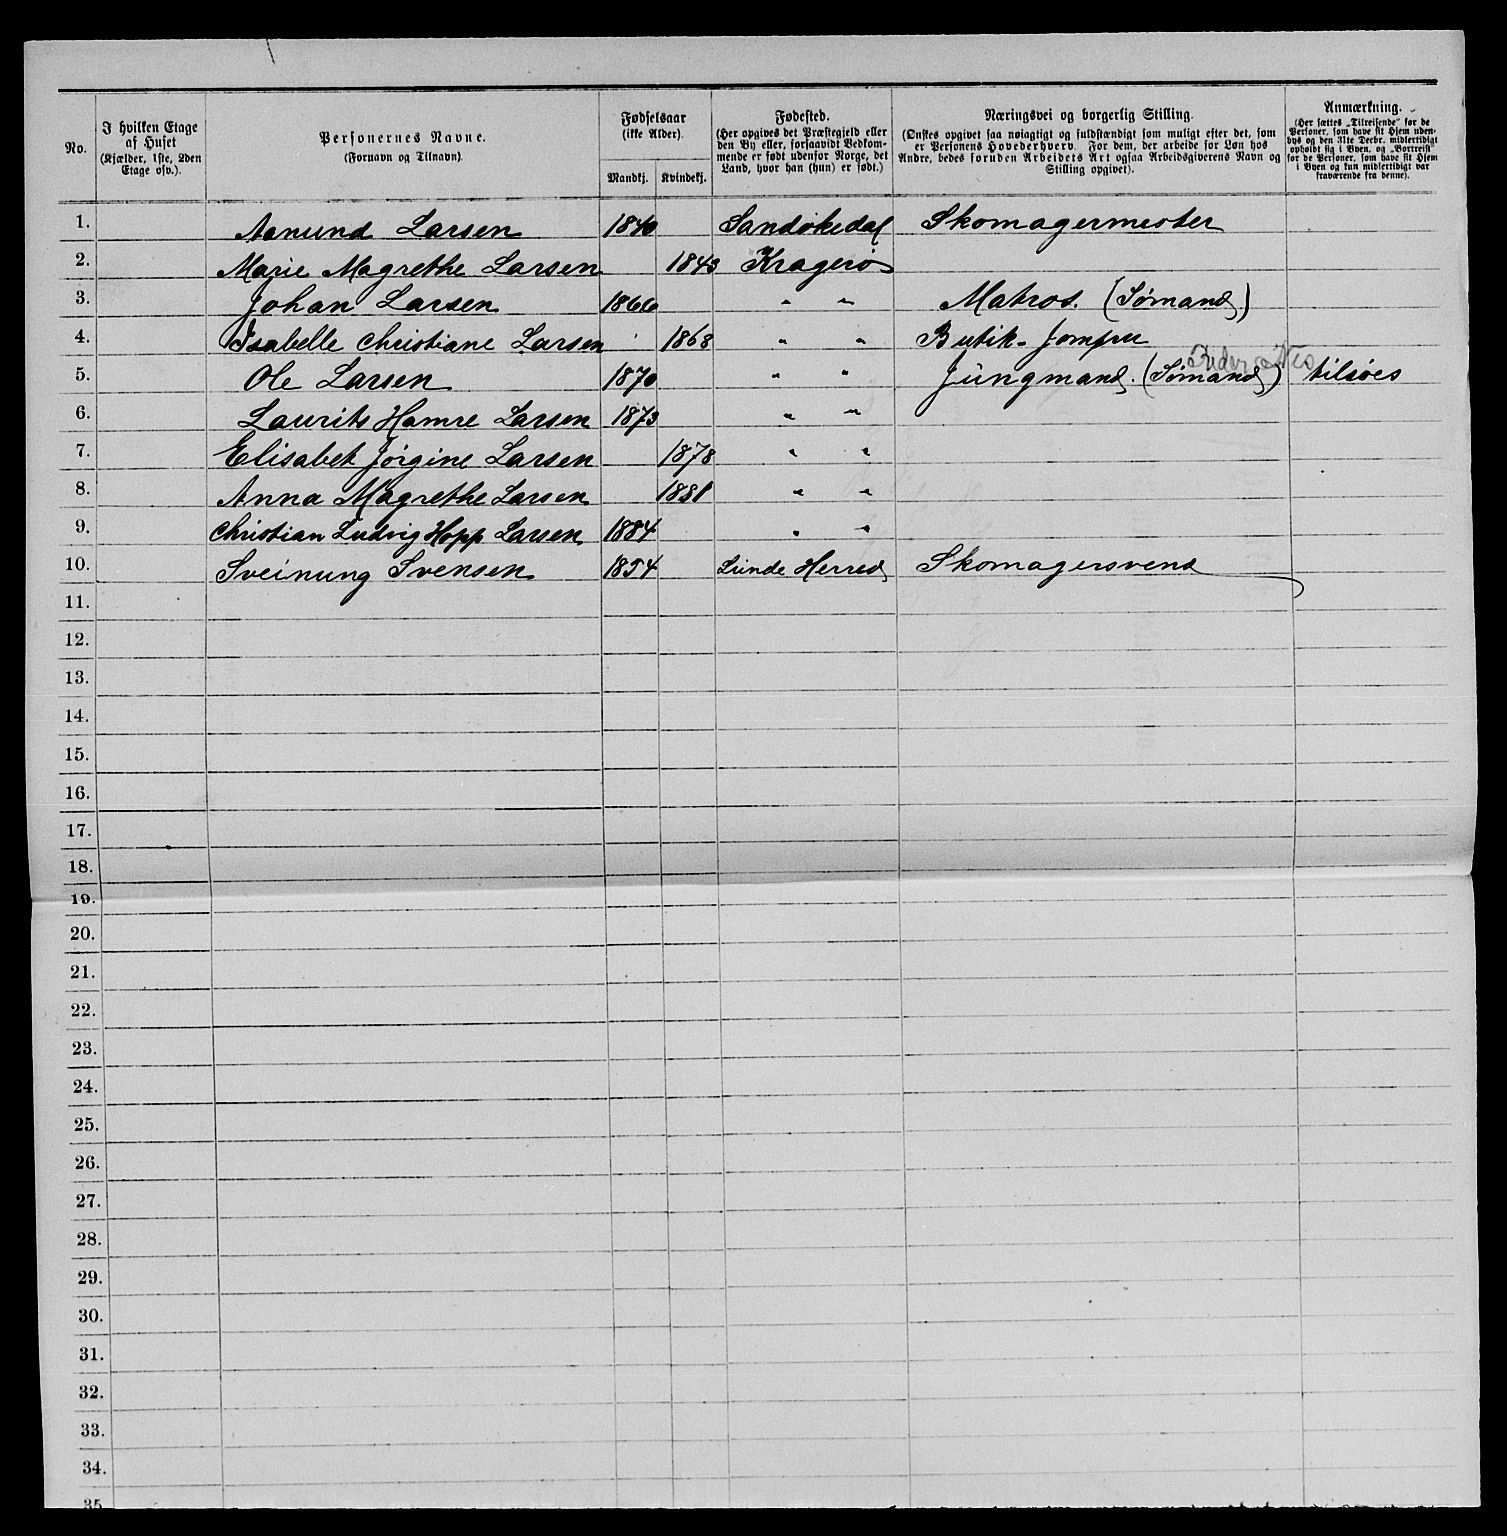 No.
I hvilken Etage
af Huset
(Kjælder, 1ste, 2den
Etage osv.).
Personernes Navne.
(Fornavn og Tilnavn).
Fødselsaar
(ikke Alder).
Mandkj. Kvindekj.
Fødested.
(Her opgives det Præstegjeld eller
den By eller, forsaavidt Vedkom-
mende er født udenfor Norge, det
Land, hvor han (hun) er født.)
Næringsvei og borgerlig Stilling.
(Ønskes opgivet saa nøiagtigt og fuldstændigt som muligt efter det, som
er Personens Hovederhverv. For dem, der arbeide for Løn hos
Andre, bedes foruden Arbeidets Art ogsaa Arbeidsgiverens Navn og
Stilling opgivet).
Anmærkning.
(Her sættes „Tilreisende“ for de
Personer, som have sit Hjem uden-
bys og den 31te Decbr. midlertidigt
opholdt sig i Byen, og „Bortreist“
for de Personer, som have sit Hjem
i Byen og kun midlertidigt var
fraværende fra denne).
1. Aanund Larsen 1840 Sandøkedal Skomagermester
2. Marie Magrethe Larsen 1843 Kragerø
3. Johan Larsen 1866 " " Matros. (Sømand)
4. Isabelle Christiane Larsen 1868 " " Butik-Jomfru
5. Ole Larsen 1870 " " Jüngmand. (Sømand) tilsøes
6. Laurits Hamre Larsen 1873 " "
7. Elisabet Jørgine Larsen 1878 " "
8. Anna Magrethe Larsen 1881 " "
9. Christian Ludvig Hopp Larsen 1884 " "
10. Sveinung Svensen 1854 Lunde Herred Skomagersvend
11.
12.
13.
14.
15.
16.
17.
18.
19.
20.
21.
22.
23.
24.
25.
26.
27.
28.
29.
30.
31.
32.
33.
34.
35